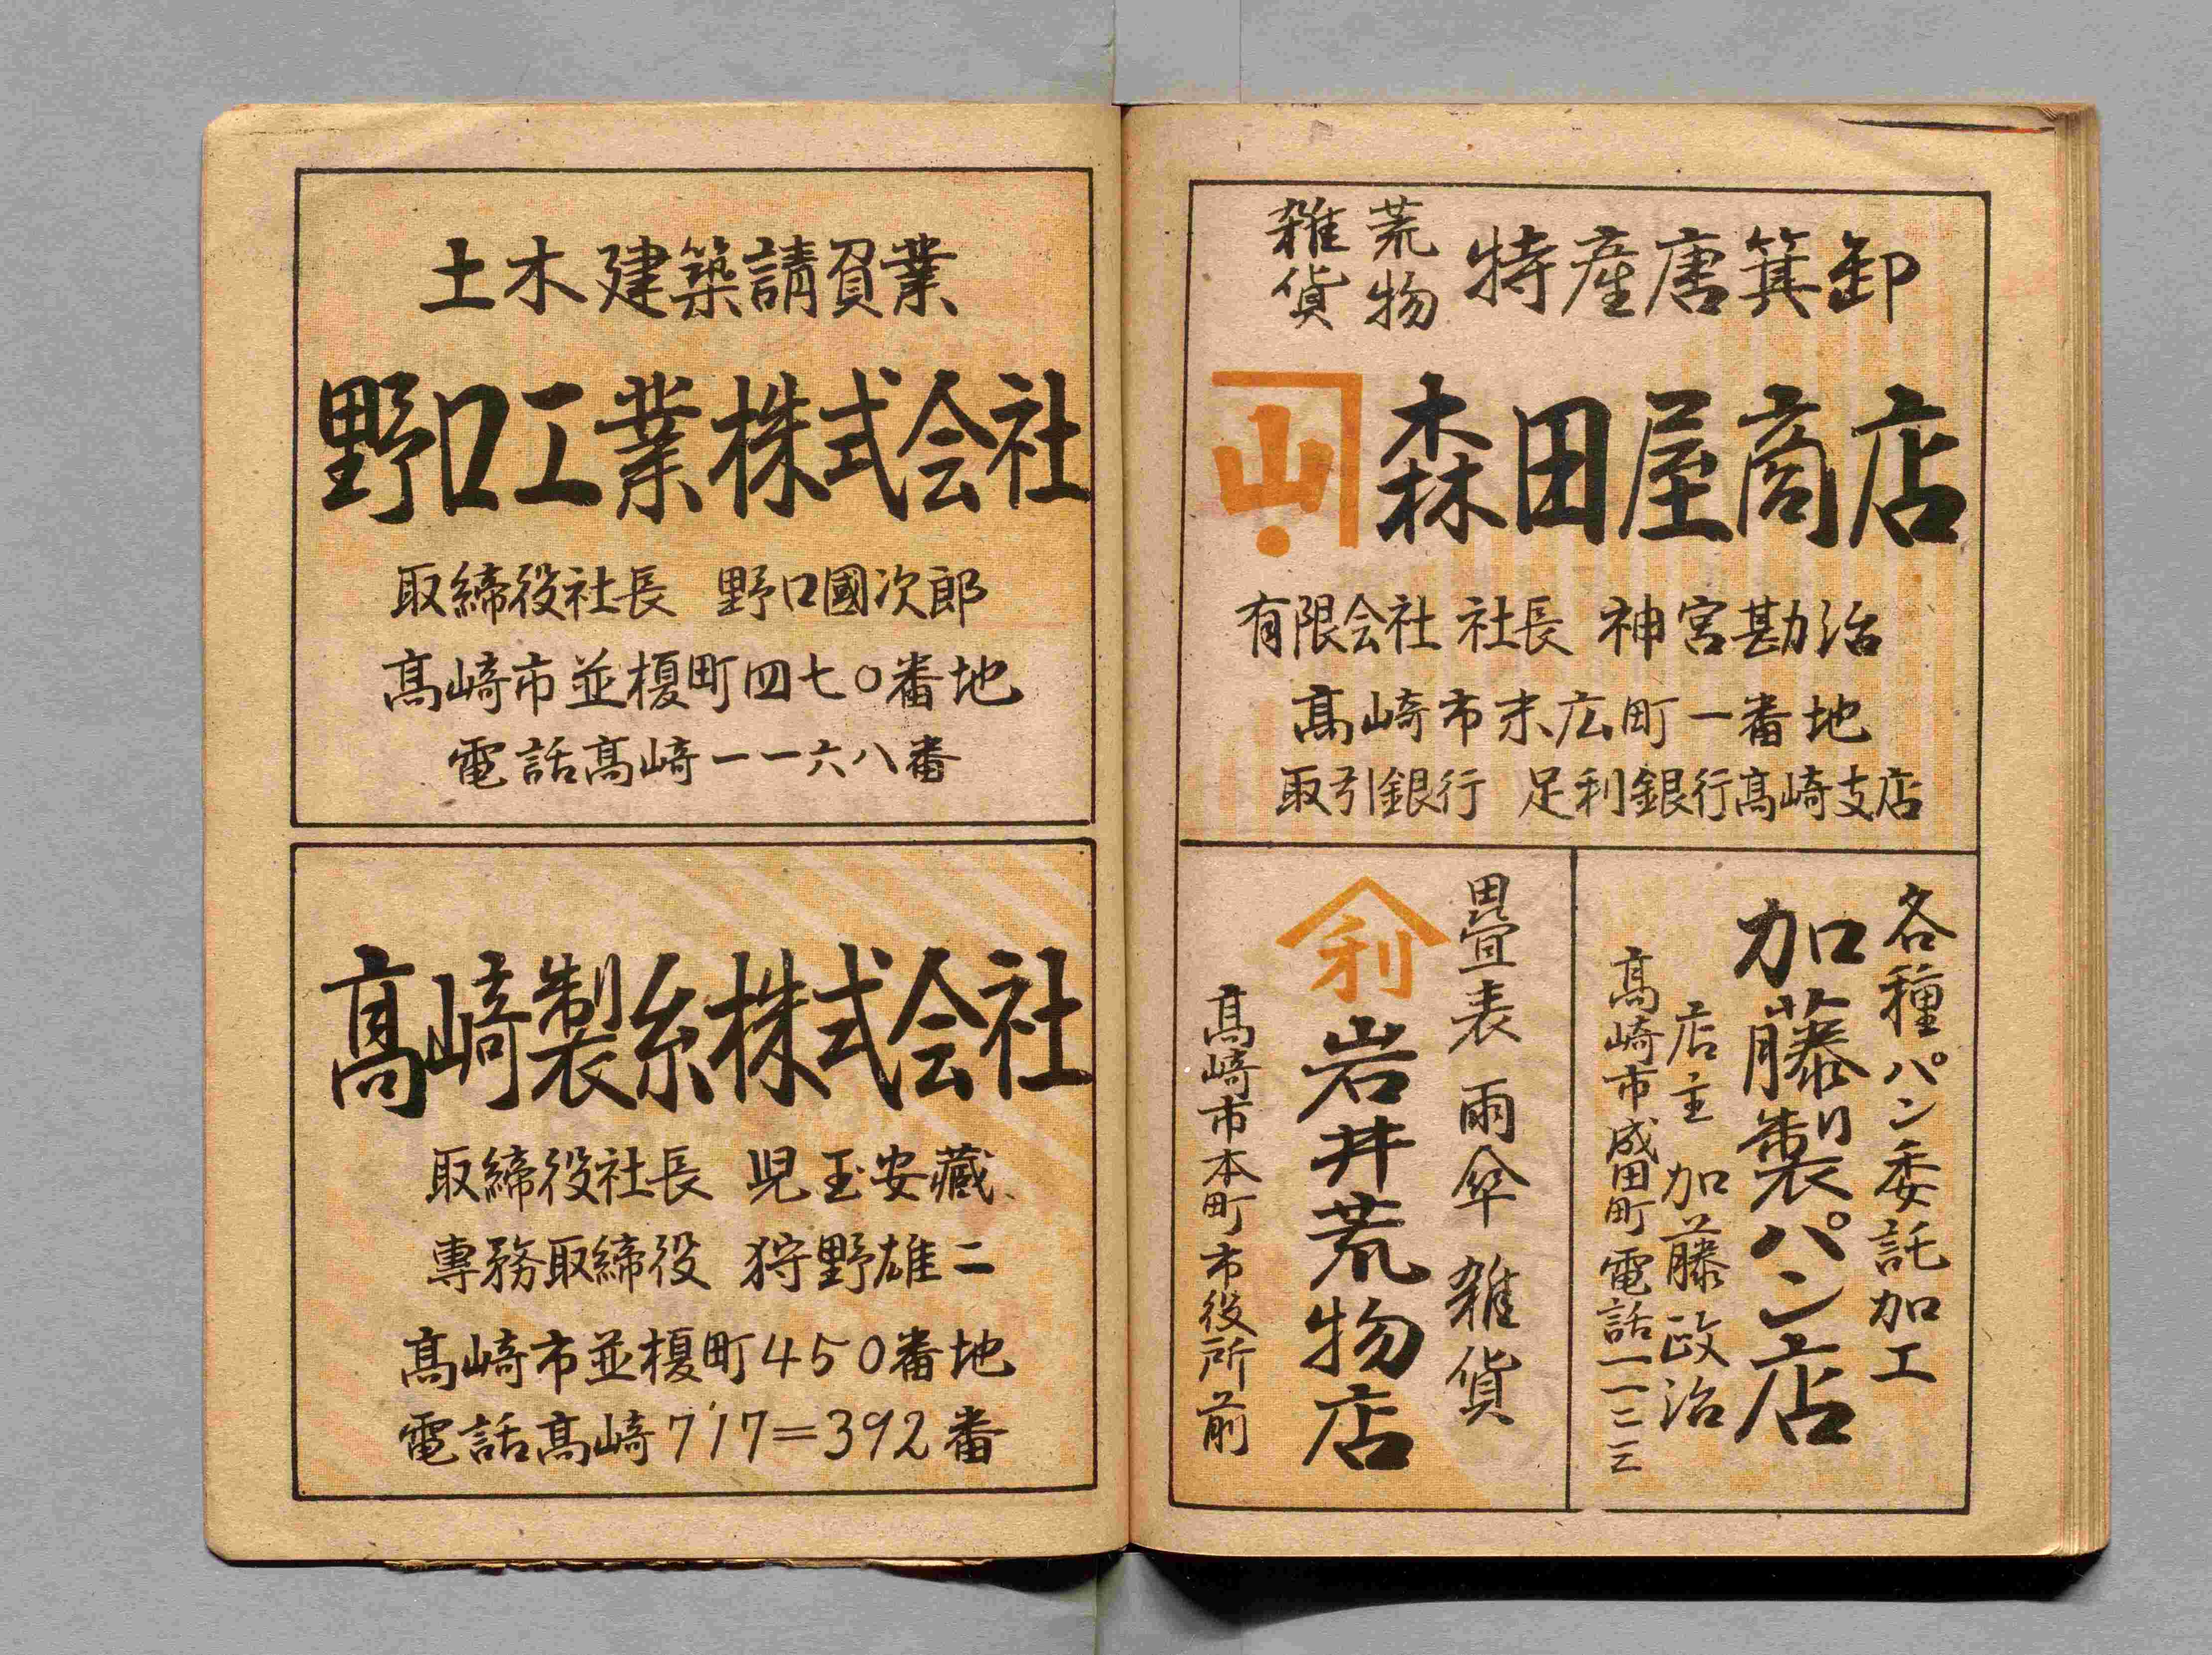 土木建築請負業
野口工業株式会社
取締役社長 野口國次郎
髙﨑市並榎町四七〇番地
電話髙﨑一一六八番
髙﨑製糸株式会社
取締役社長 児玉安藏
専務取締役 狩野雄二
髙﨑市並榎町450番地
電話髙﨑717=392番
荒物
雑貨
特産唐箕卸
山
森田屋商店
有限会社 社長 神宮勘治
髙﨑市末広町一番地
取引銀行 足利銀行髙﨑支店
各種パン委託加工
加藤製パン店
店主 加藤政治
髙﨑市成田町電話一一二三
畳表 雨傘 雑貨
利
岩井荒物店
髙﨑市本町市役所前